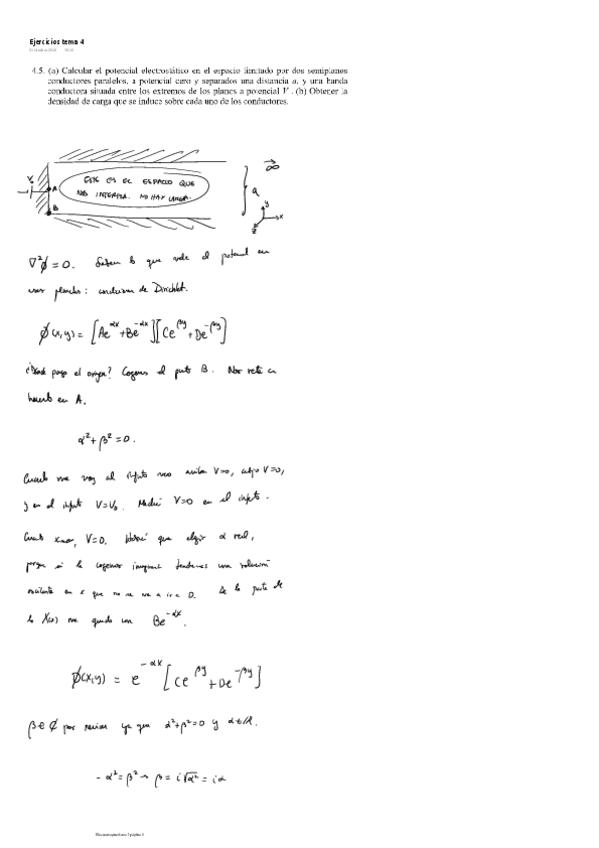 Ejercicios tema 4
4.5. (a) Calcular el potencial electrostático en el espacio limitado por dos semiplanos
conductores paralelos, a potencial cero y separados una distancia a, y una banda
conductora situada entre los extremos de los planos a potencial V. (b) Obtener la
densidad de carga que se induce sobre cada uno de los conductores.
ESTE ES EL ESPACIO QUE
NOS INTERESA. NO HAY CARGA.
A
B
a
∞
y
x
z
∇²ϕ = 0. Saben lo que vale el potencial en
esas planchas: condiciones de Dirichlet.
ϕ(x,y) = [Ae^{αx} + Be^{-αx}][Ce^{βy} + De^{-βy}]
¿Dónde pongo el origen? Cogemos el punto B. Nos
hacerlo en A.
α² + β² = 0.
Cuando me voy al infinito veo arriba V=0, abajo V=0,
y en el infinito V=V₀. V=0 en el infinito.
Cuando x→∞, V=0. que elegir α real,
porque si la cogemos imaginaria tendremos una solución
oscilante en x que no se va a ir a 0. De la parte de
la X(x) me quedo con Be^{-αx}.
ϕ(x,y) = e^{-αx}[Ce^{βy} + De^{-βy}]
β∈₵ por ya que α²+β²=0 y α∈ℝ.
-α² = β² → β = i√α² = iα